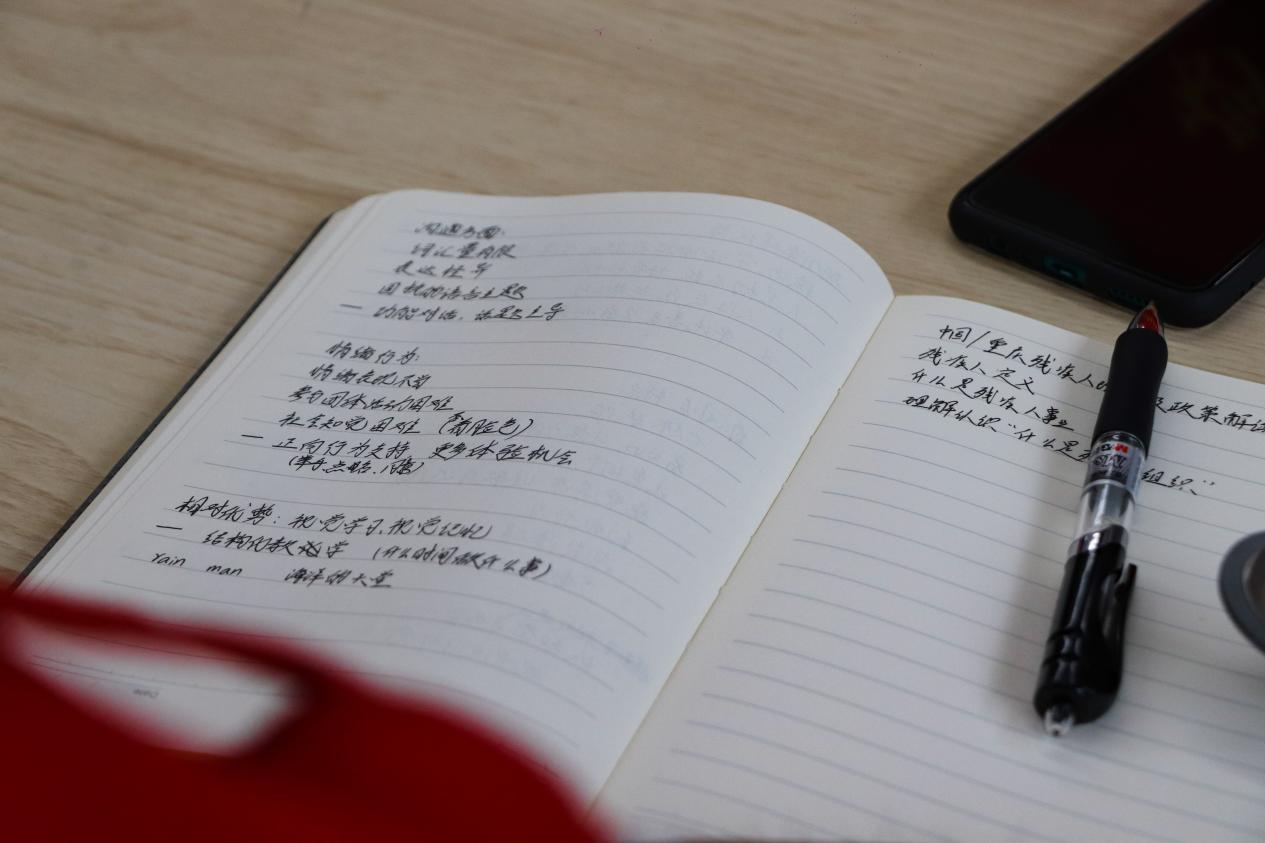 沟通方面:
词汇量有限
表达性弱
固执的语言主题
— 功能对话、话题主导
情绪行为:
情绪表现不当
参与团体活动困难
社会知觉困难 (看脸色)
— 正向行为支持 更多体验机会
相对优势: 视觉学习、视觉记忆
— 结构化教学 (什么时间做什么事)
rain man 海洋的天堂
中国/重庆残疾人
及政策解读
残疾人定义
什么是残疾人事业
理解认识“什么是
组织”
M&G